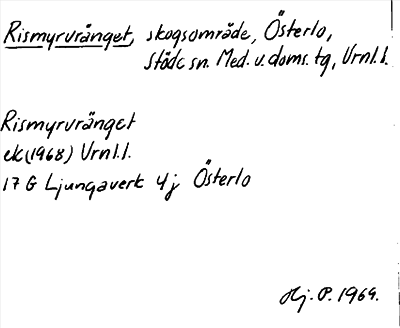 Rismyrvränget, skogsområde, Österlo,
Stöde sn. Med. v. doms. tg, Vrnl.l.
Rismyrvränget
ek(1968) Vrnl.l.
17 G Ljungaverk 4j Österlo
Hj. P. 1969.